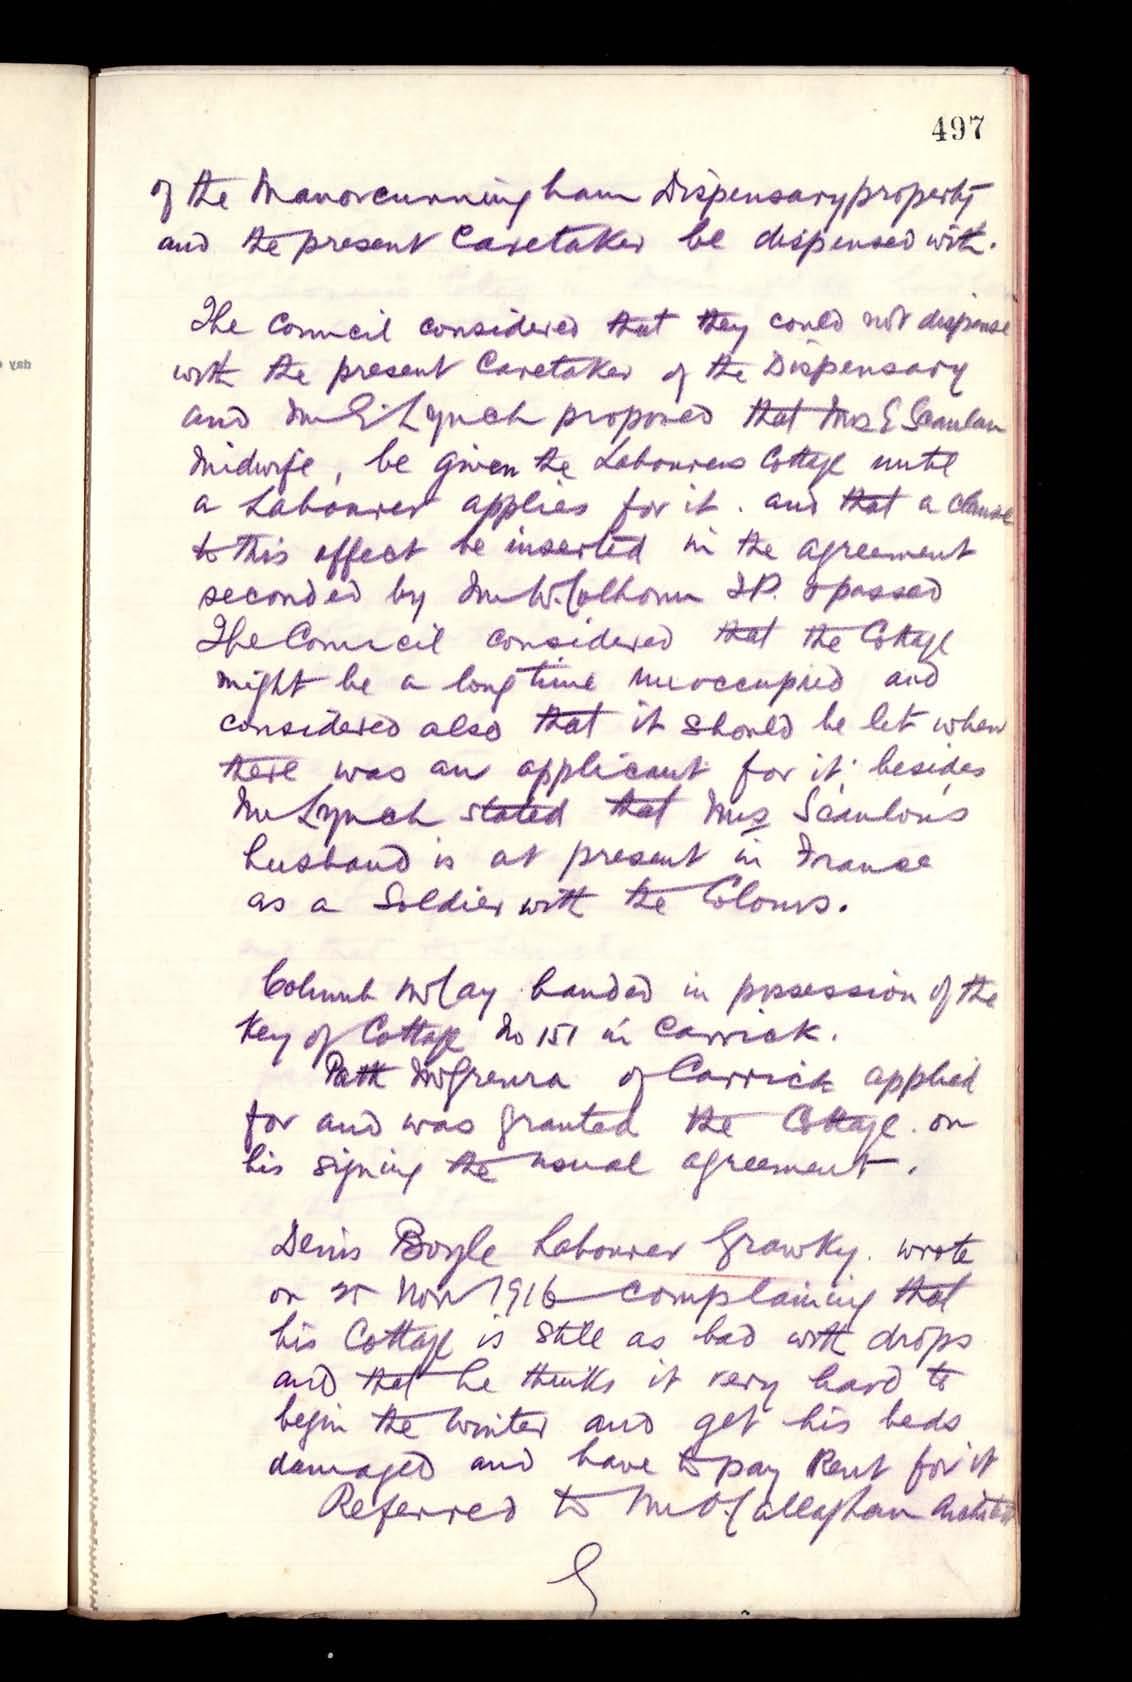 497
of the Manorcunningham Dispensary property
and the present Caretaker be dispensed with.
The Council considered that they could not dispense
with the present Caretaker of the Dispensary
and Mr E. Lynch proposed that Mrs E Scanlan
Midwife, be given the Labourers Cottage until
a Labourer applies for it. and that a clause
to this effect be inserted in the agreement
seconded by Mr W. Colhoun J.P. & passed
The Council considered that the Cottage
might be a long time unoccupied and
considered also that it should be let when
there was an applicant for it; besides
Mr Lynch stated that Mrs Scanlon's
husband is at present in France
as a Soldier with the Colours.
Columb McCay handed in possession of the
Key of Cottage No 151 in Carrick.
Patk of Carrick applied
for and was granted the Cottage. on
his signing the usual agreement.
Denis Boyle Labourer Grawky. wrote
on Nov 1916 complaining that
his Cottage is still as bad with drops
and that he thinks it very hard to
begin the Winter and get his beds
damaged and have to pay Rent for it
Referred to Mr O'Callaghan Architect